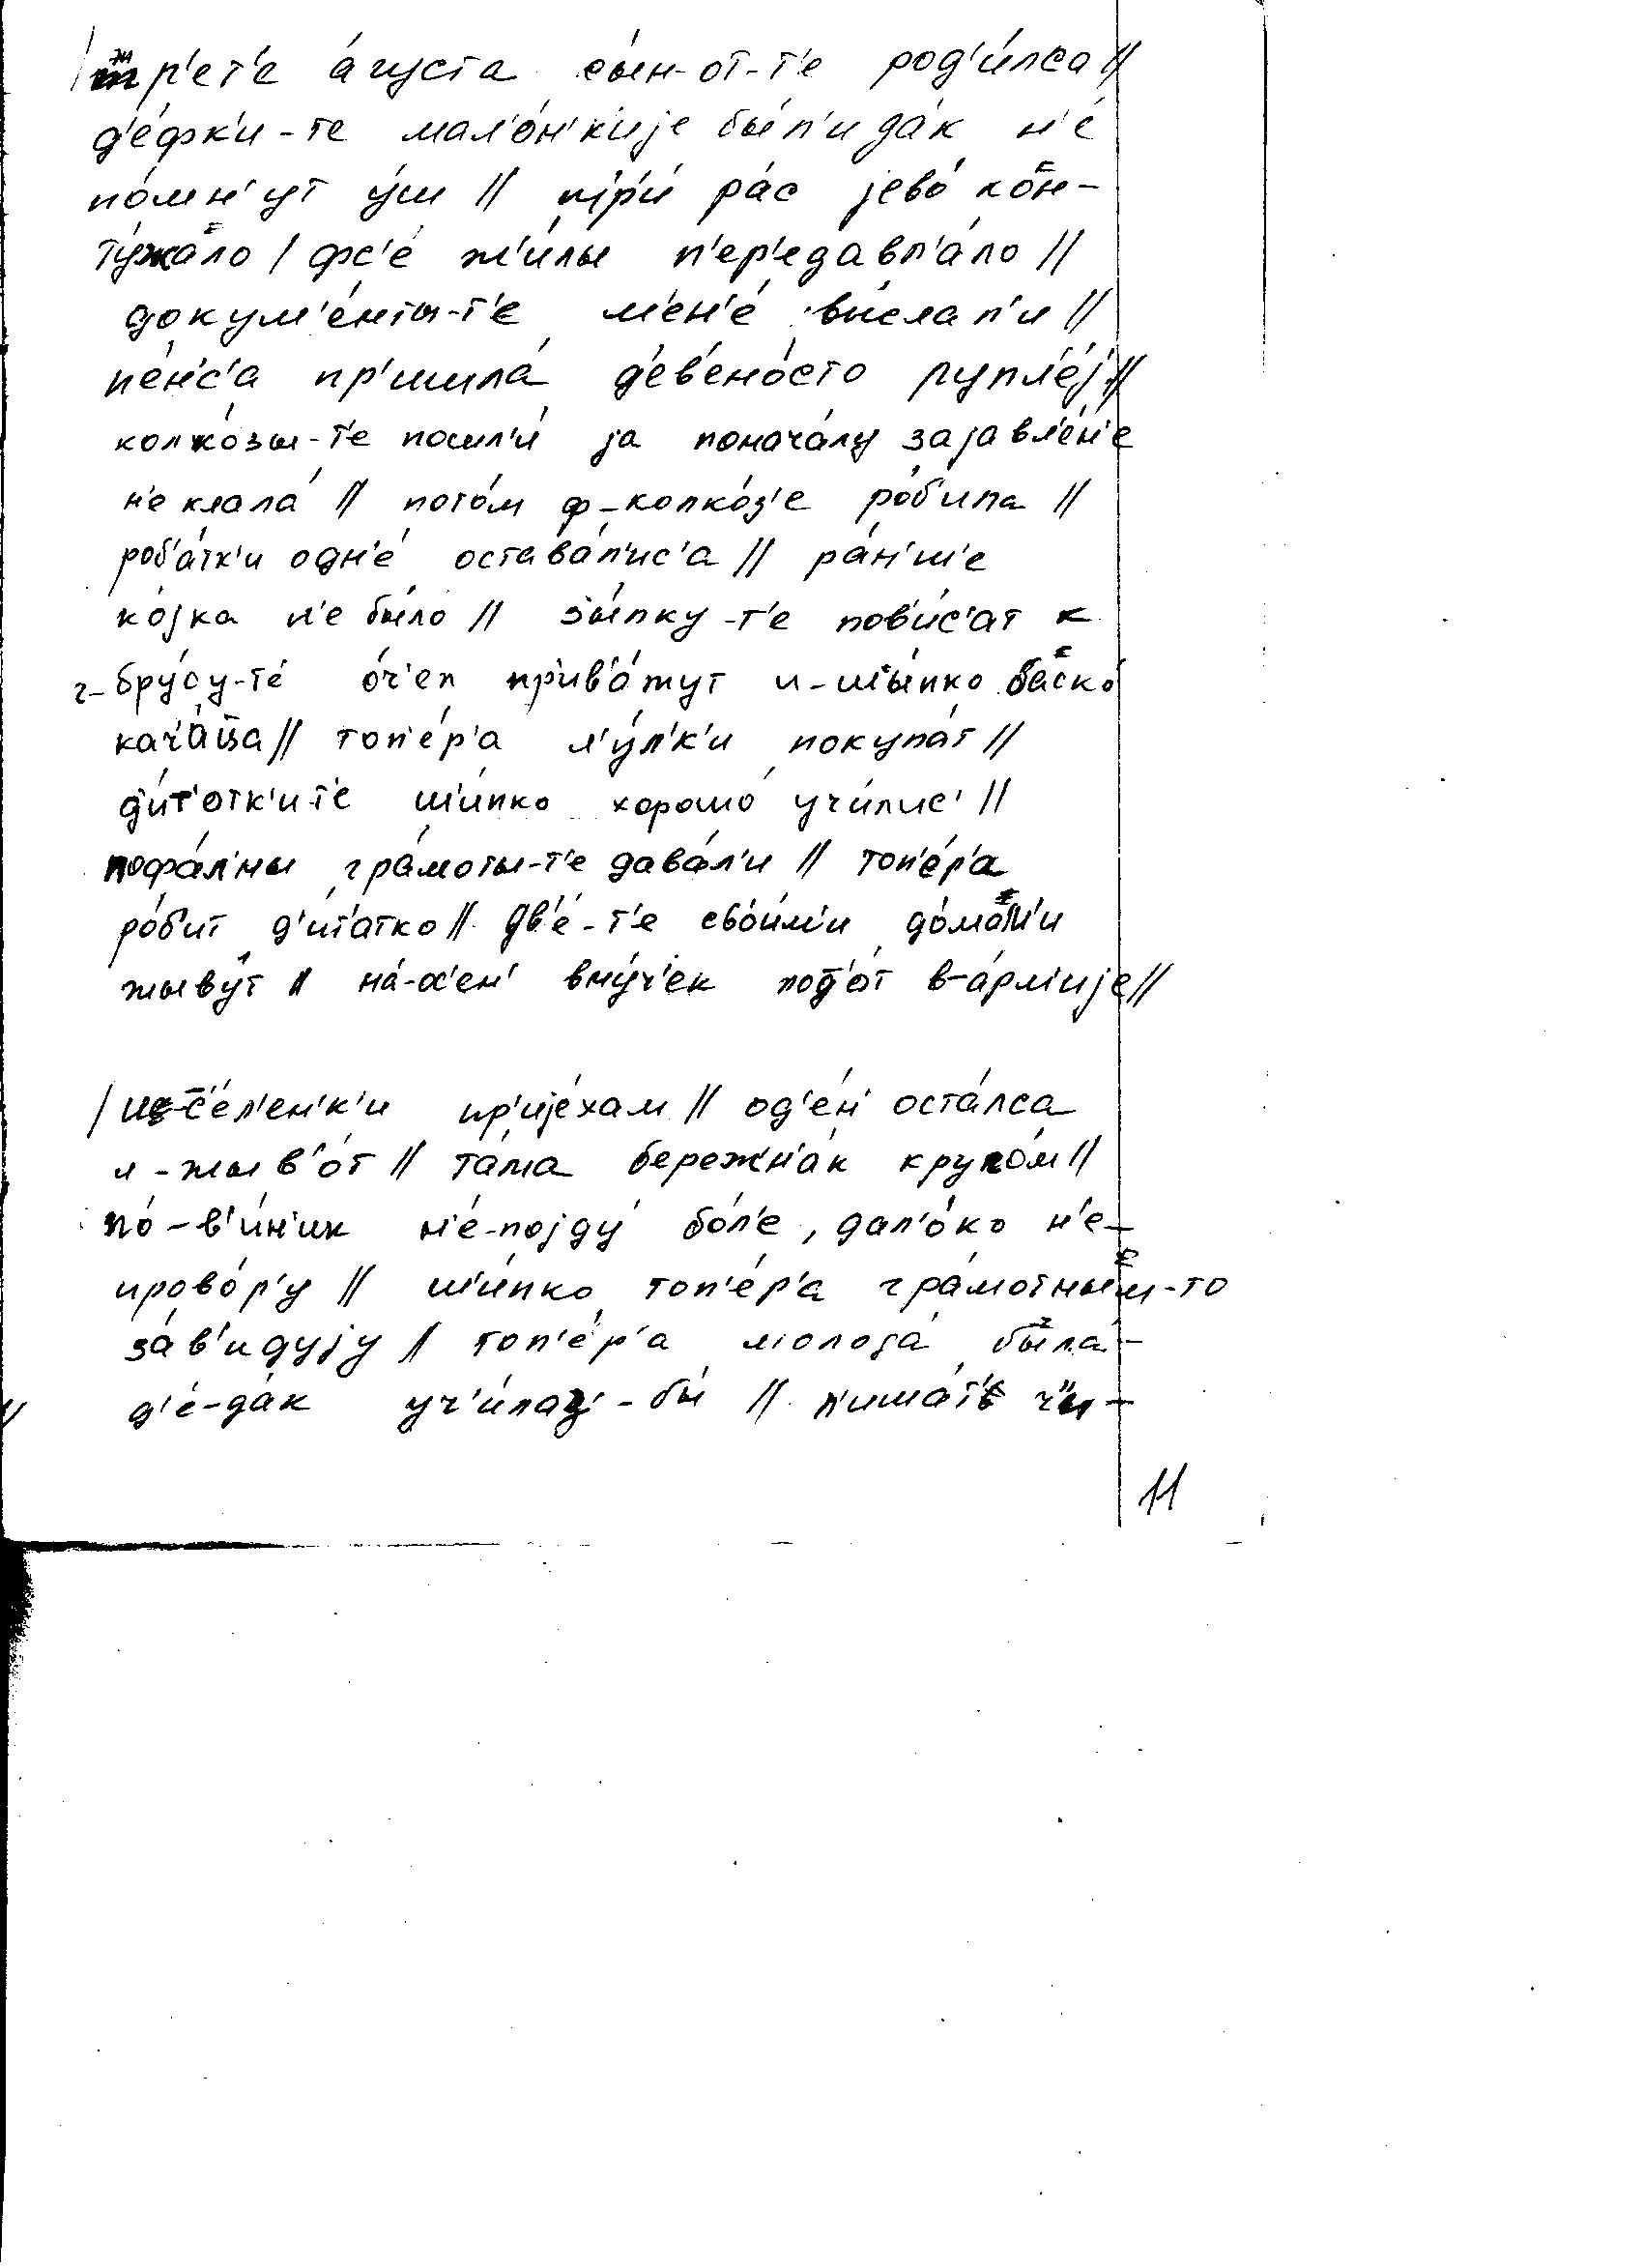 / тр'ет'е áгуста сы́н-от-т'е род'и́лса //
д'éфк'и-те мал'óн'кије бы́л'и дáк н'é
пóмн'ут ýш // тр'и́ рáс јевó кон-
тýжало / фс'é ж'и́лы п'ер'едавл'áло //
докум'éнты-т'е м'ен'é вы́слал'и //
пéн'с'а пр'ишлá д'ев'енóсто рупл'éј //
колхóзы-т'е пошл'и́ ја поначáлу зајавл'éн'е
н'е клалá // потóм ф-колхóз'е рóб'ила //
роб'áтк'и одн'é оставáл'ис'а // рáн'ш'е
кóјка н'é было // зы́пку-т'е пов'и́с'ат к
г-брýсу-т'é óч'еп прив'óжут и-шы́пко баскó
кач'áца // топ'éр'а л'ýл'к'и покупáт //
д'и́т'отк'и-т'е ш'и́пко хорошó уч'и́лис' //
пофáл'ны грáмоты-т'е давáл'и // топ'éр'а
рóб'ит д'и́т'атко // дв'é-т'е свои́м'и домáм'и
жывýт // нá-ос'ен' внýч'ек пој'д'óт в-áрм'ије //
/ ис-с'éл'ен'к'и пр'ијéхал // од'éн остáлса
и-жыв'óт // тáма бережн'áк кругóм //
пó-в'и́н'ик н'é-појдý бóл'е, дал'óко н'е-
провóр'у // ш'и́пко топ'éр'а грáмотным-то
зáв'идују // топ'éр'а молодá былá-
д'é-дáк уч'и́лаз'-бы́ // п'исáт' ч'и-
11